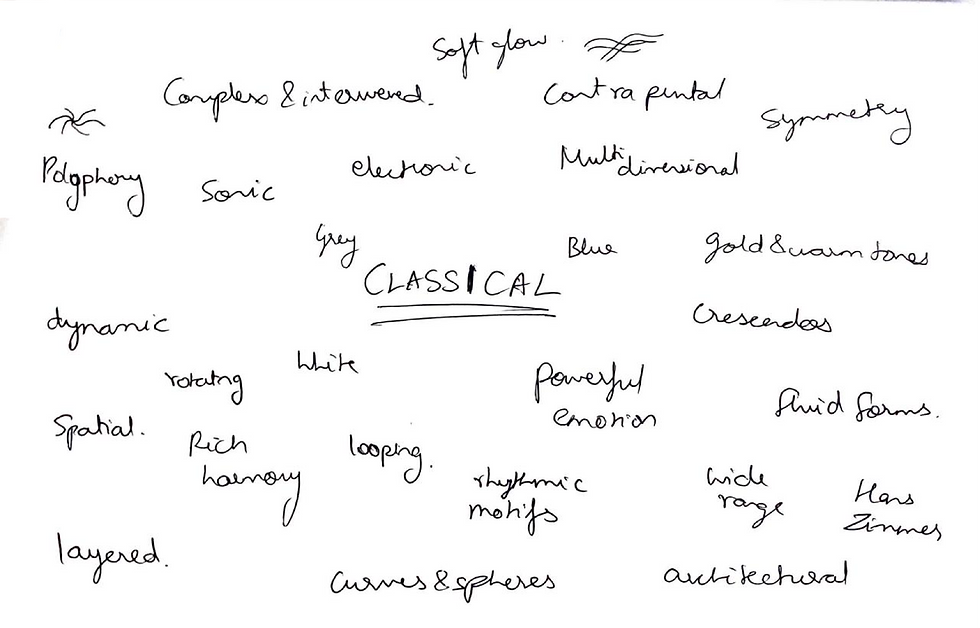 Soft glow.
Complex & interweved.
Contrapuntal
Symmetry
Polyphony
Sonic
electronic
Multi
dimensional
Grey
Blue
gold & warm tones
CLASSICAL
Crescendos
dynamic
rotating
White
Powerful
emotion
fluid forms.
Spatial.
Rich
harmony
looping.
rhythmic
motifs
wide
range
Hans
Zimmer
layered.
Curves & spheres
architectural